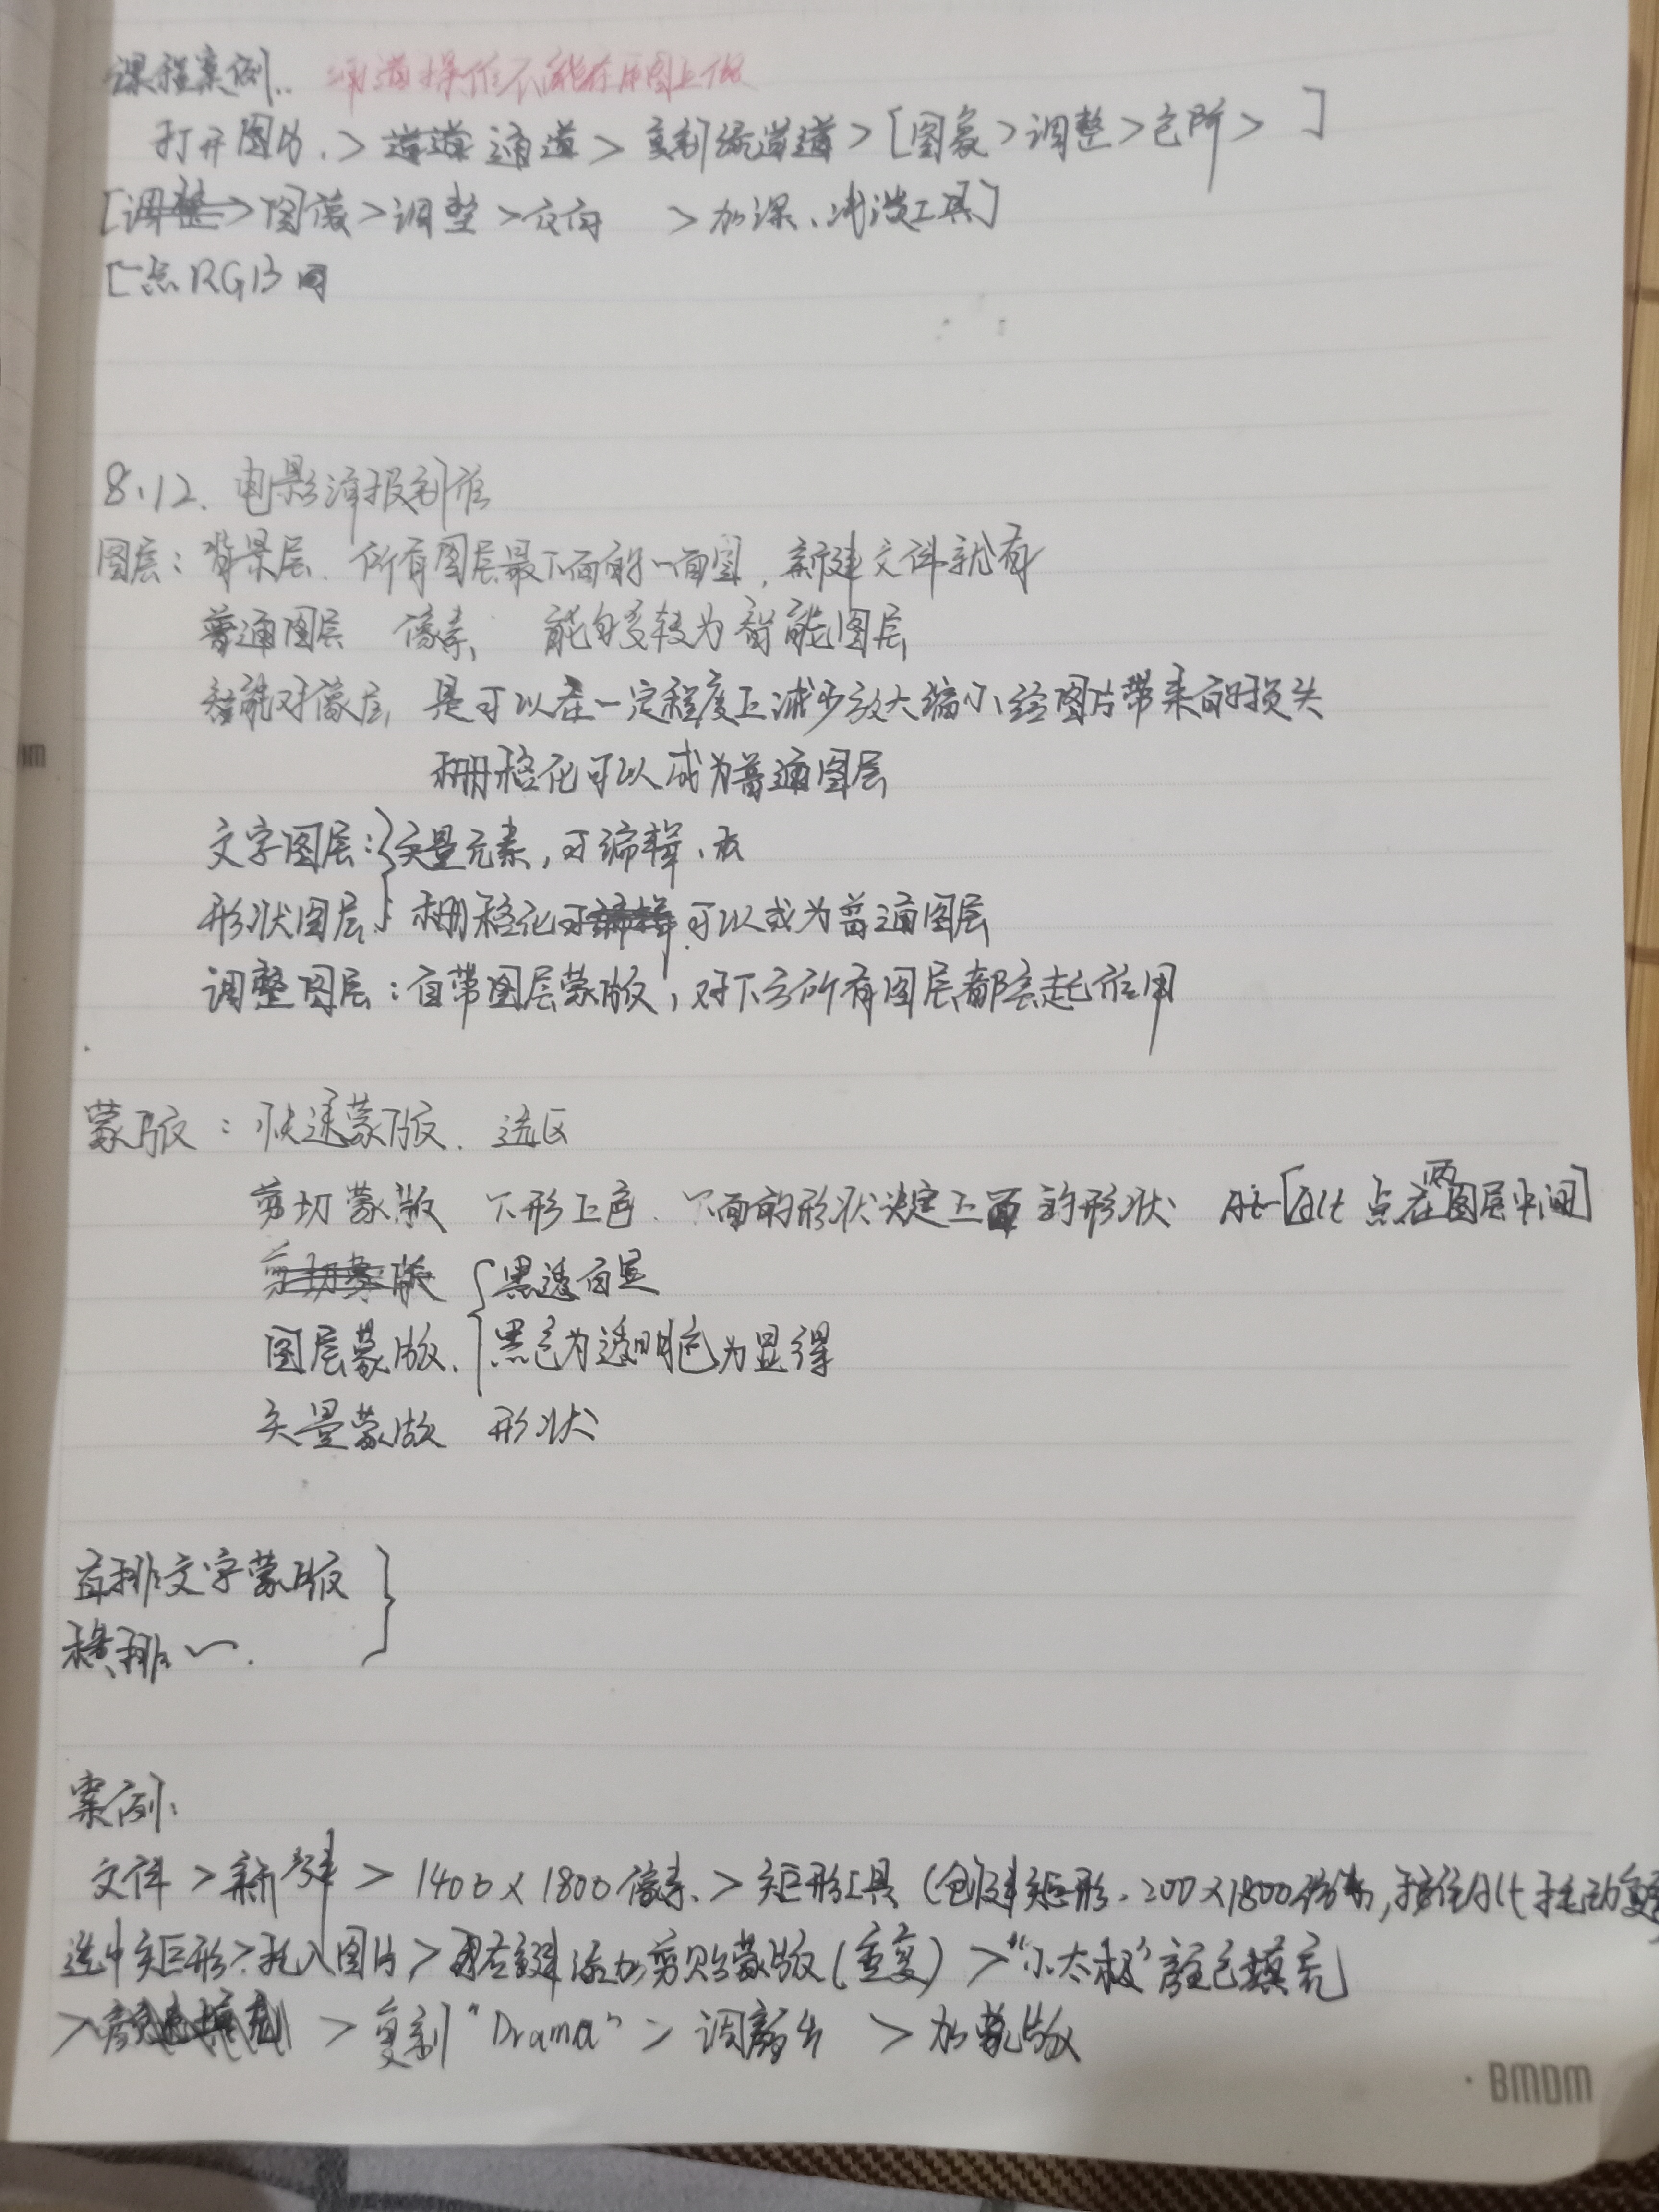 课程案例. 通道操作不能在原图上做
打开图片. > 通道 > 复制 通道 > [图象 > 调整 > 色阶 > ]
[ 图像 > 调整 > 反向 > 加深、减淡工具]
[点RGB
8.12. 电影海报制作
图层: 背景层. 所有图层最下面的一面图, 新建文件就有
普通图层 像素, 能够转为智能图层
智能对像层, 是可以在一定程度上减少放大缩小给图片带来的损失
栅格化可以成为普通图层
文字图层: 矢量元素, 可编辑.
形状图层 栅格化 可以成为普通图层
调整图层: 自带图层蒙版, 对下方所有图层都会起作用
蒙版: 快速蒙版. 选区
剪切蒙版 下形上色. 下面的形状决定上面的形状 [Alt 点在两图层中间]
剪切蒙版 黑透白显
图层蒙版. 黑色为透明色为显得
矢量蒙版 形状
直排文字蒙版
横排 〜.
案例:
文件 > 新建 > 1400 x 1800像素. > 矩形工具 (创建矩形. 200 x 1800像素, 按住Alt拖动复
选中矩形 > 拖入图片 > 右键添加剪贴蒙版(重复) > "小太极" 颜色填充
> 复制 "Drama" > 调 > 加蒙版
BMDM